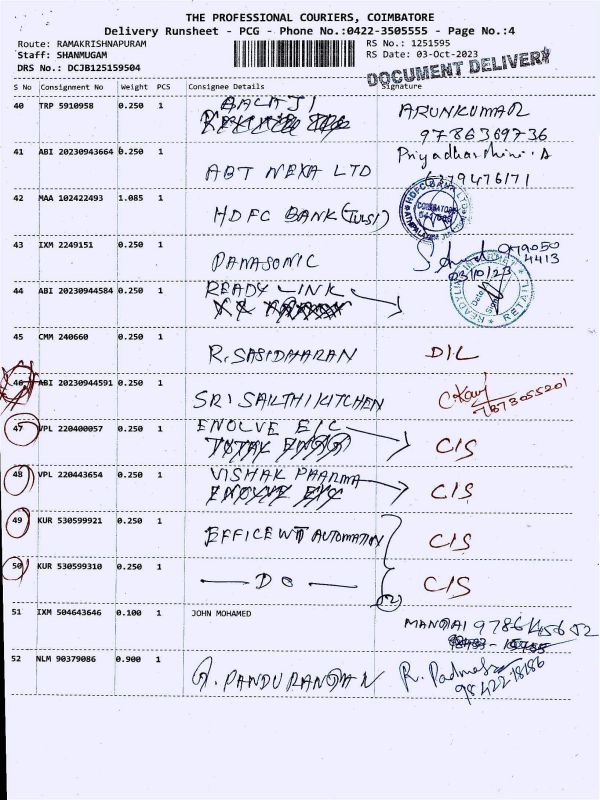 THE PROFESSIONAL COURIERS, COIMBATORE
Delivery Runsheet - PCG - Phone No.:0422-3505555 - Page No.:4
Route: RAMAKRISHNAPURAM
RS No.: 1251595
Staff: SHANMUGAM
RS Date: 03-Oct-2023
DRS No.: DCJB125159504
DOCUMENT DELIVERY
S No Consignment No Weight PCS Consignee Details Signature
40 TRP 5910958 0.250 1 BALAJI ARUNKUMAR
9786369736
41 ABI 20230943664 0.250 1 ABT NEXA LTD Priyadharshini. A
6379476171
42 MAA 102422493 1.085 1 HDFC BANK (TULSI) HDFC BANK LTD
COIMBATORE
43 IXM 2249151 0.250 1 PANASONIC 979050
4413
03/10/23
44 ABI 20230944584 0.250 1 READY LINK
45 CMM 240660 0.250 1 R. SASIDHARAN D/L
46 ABI 20230944591 0.250 1 SRI SAKTHI KITCHEN
7873055201
47 VPL 220400057 0.250 1 ENOLVE E/C C/S
48 VPL 220443654 0.250 1 VISHAK PHARMA C/S
49 KUR 530599921 0.250 1 EFFICEWT AUTOMATION C/S
50 KUR 530599310 0.250 1 — DO — C/S
(2)
51 IXM 504643646 0.100 1 JOHN MOHAMED MANGAI
52 NLM 90379086 0.900 1 A. PANDURANGAN R. Padma
98422-18186